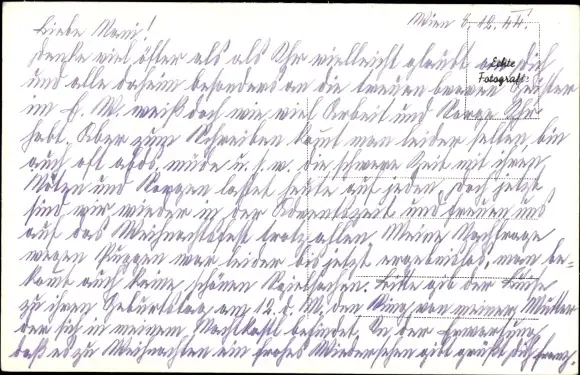 Wien 8.12.44.
Liebe Mani!
Denke viel öfter als als Ihr vielleicht glaubt an Dich
Echte
Fotografie
und alle daheim besonders an die treuen braven Mütter
im H. W. weiß doch wie viel Arbeit und Sorge Ihr
habt. Aber zum Schreiben kommt man leider selten, bin
auch oft abds. müde u. s. w. die schwere Zeit mit ihren
Nöten und Sorgen lastet heute auf jeden, doch jetzt
sind wir wieder in der Adventszeit und freuen uns
auf das Weihnachtsfest trotz allem. Meine Nachfrage
wegen Puppen war leider bis jetzt ergebnislos, man be-
kommt auch keine schönen Spielsachen. Bitte gib der
zu ihren Geburtstag am 12. d. M. den Ring von meiner Mutter
der sich in meinem Nachtkastl befindet. In der Erwartung
daß es zu Weihnachten ein frohes Wiedersehen gibt grüßt Dich Franz.